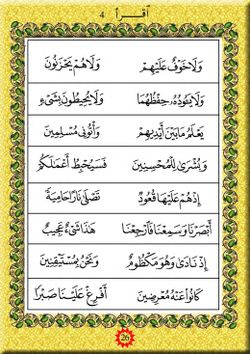 اقرأ 4
وَلَاخَوْفٌ عَلَيْهِمْ وَلَاهُمْ يَحْزَنُونَ
وَلَا يَئُودُهُۥ حِفْظُهُمَا وَلَا يُحِيطُونَ بِشَىْءٍ
يَعْلَمُ مَا بَيْنَ أَيْدِيهِمْ وَأْتُونِى مُسْلِمِينَ
وَبُشْرَىٰ لِلْمُحْسِنِينَ فَسَيُحْبِطُ أَعْمَـٰلَكُمْ
إِذْ هُمْ عَلَيْهَا قُعُودٌ تَصْلَىٰ نَارًا حَامِيَةً
أَبْصَرْنَا وَسَمِعْنَا فَٱرْجِعْنَا هَـٰذَا شَىْءٌ عَجِيبٌ
إِذْ نَادَىٰ وَهُوَ مَكْظُومٌ وَنَحْنُ بِمُسْتَيْقِنِينَ
كَانُوا۟ عَنْهُ مُعْرِضِينَ أَفْرِغْ عَلَيْنَا صَبْرًا
26